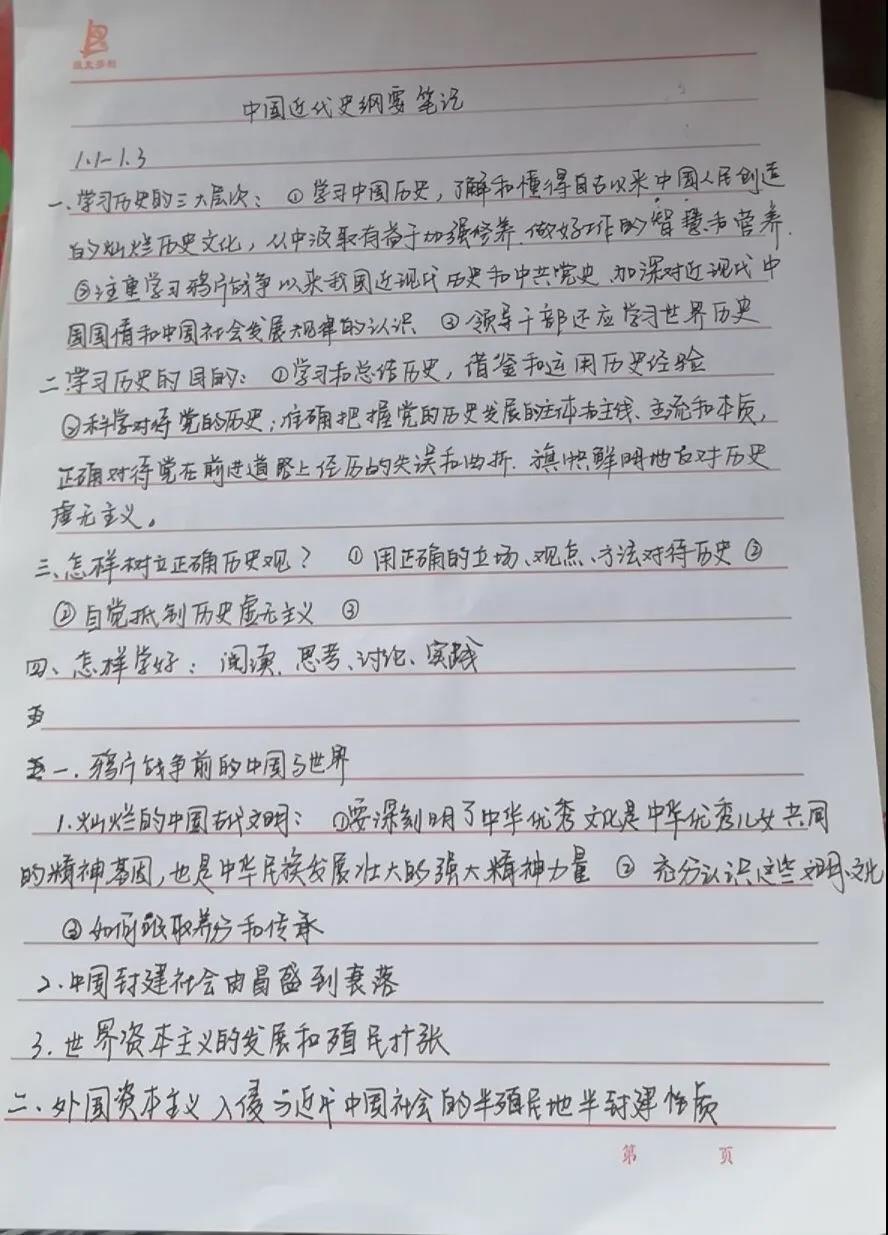 中国近代史纲要笔记
1.1-1.3
一、学习历史的三大层次：①学习中国历史，了解和懂得自古以来中国人民创造
的灿烂历史文化，从中汲取有益于加强修养、做好工作的智慧和营养.
②注重学习鸦片战争以来我国近现代历史和中共党史、加深对近现代中
国国情和中国社会发展规律的认识 ③领导干部还应学习世界历史
二、学习历史的目的：①学习和总结历史，借鉴和运用历史经验
②科学对待党的历史；准确把握党的历史发展的主体与主线、主流和本质，
正确对待党在前进道路上经历的失误和曲折. 旗帜鲜明地应对历史
虚无主义。
三、怎样树立正确历史观？ ①用正确的立场、观点、方法对待历史 ②
②自觉抵制历史虚无主义 ③
四、怎样学好：阅读、思考、讨论、实践
五
一、鸦片战争前的中国与世界
1.灿烂的中国古代文明：①要深刻明了中华优秀文化是中华优秀儿女共同
的精神基因，也是中华民族发展壮大的强大精神力量 ②充分认识这些文明、文化
③如何吸取养分和传承
2.中国封建社会由昌盛到衰落
3.世界资本主义的发展和殖民扩张
二、外国资本主义入侵与近代中国社会的半殖民地半封建性质
第 页